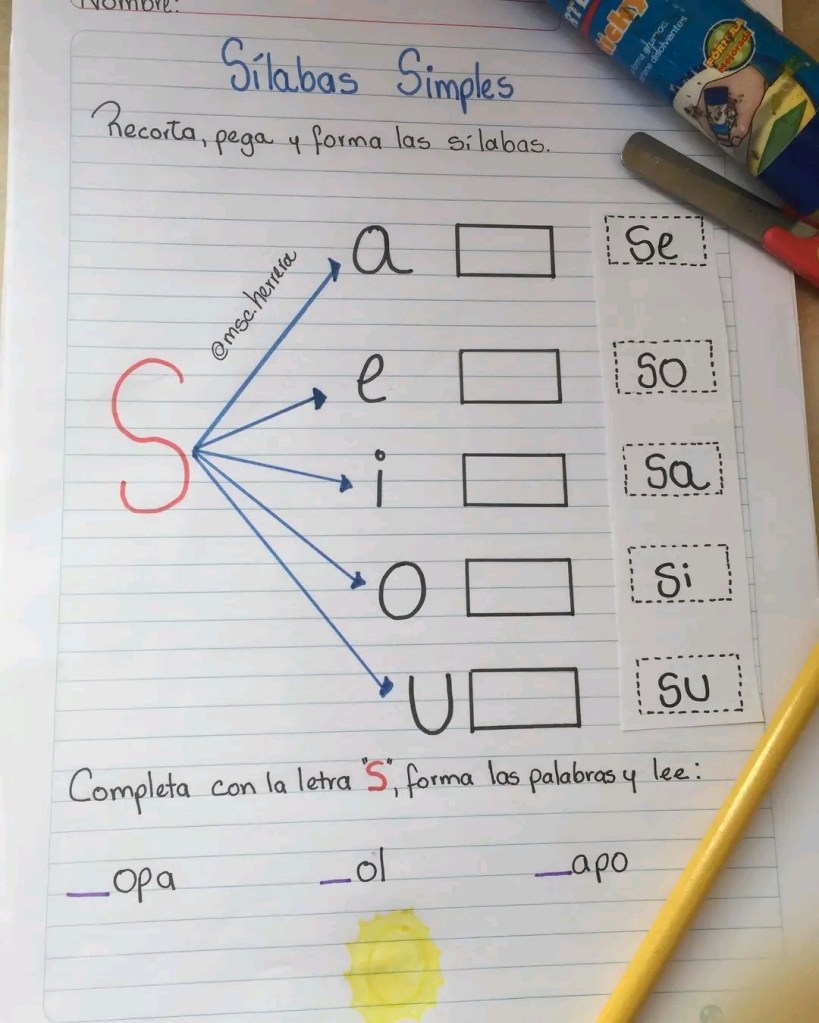 Nombre:
Sílabas Simples
Recorta, pega y forma las sílabas.
@msc.herrera
S
a
Se
e
So
i
Sa
O
Si
U
SU
Completa con la letra "S", forma las palabras y lee:
_opa _ol _apo